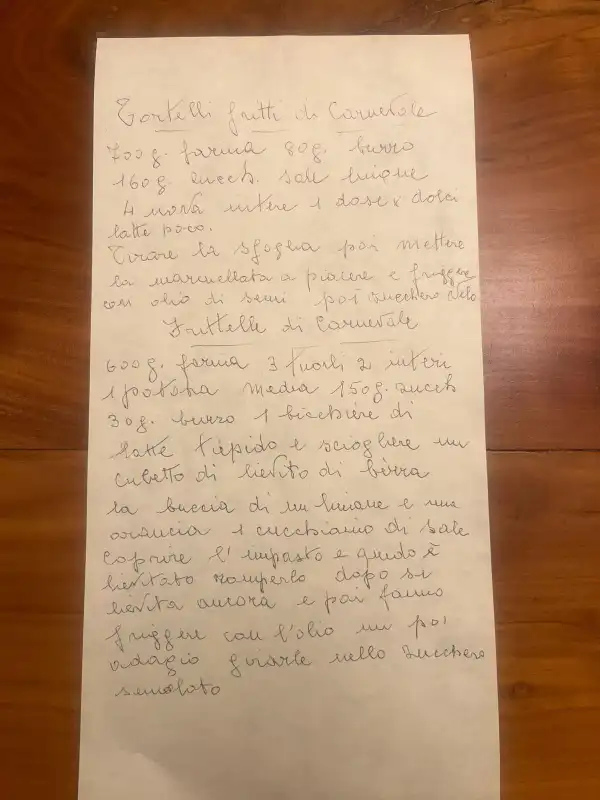 Tortelli fritti di Carnevale
700g. farina 80g. burro
160g. zucch. sale limone
4 uova intere 1 dose x dolci
latte poco.
Tirare la sfoglia poi mettere
la marmellata a piacere e friggere
con olio di semi poi zucchero velo
Frittelle di Carnevale
600g. farina 3 tuorli 2 interi
1 patata media 150g. zucch
30g. burro 1 bicchiere di
latte tiepido e sciogliere un
cubetto di lievito di birra
la buccia di un limone e una
arancia 1 cucchiaino di sale
coprire l'impasto e quando è
lievitato romperlo dopo si
lievita ancora e poi fanno
friggere con l'olio un po'
adagio girarle nello zucchero
semolato